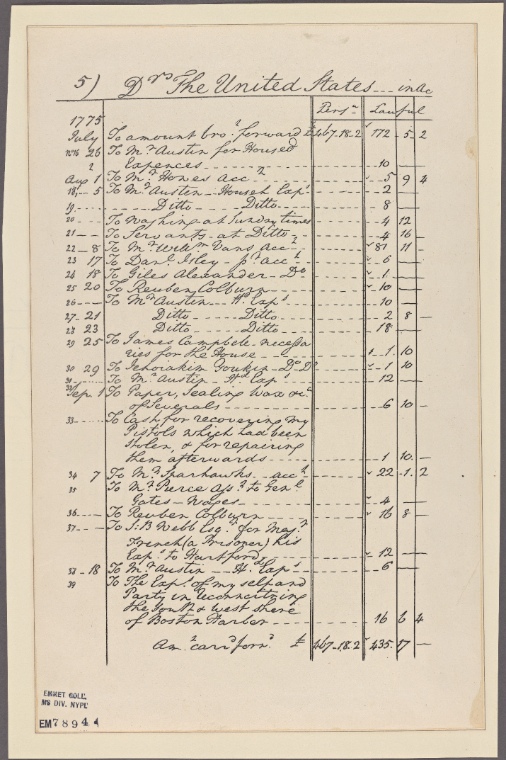 5) Drs The United States --- in Acc
Pensa Lawful
1775
July To amount bro.t forward £ 467.18.2 172 - 5 2
26 To Mr. Austin for Househd
Expences 10
Aug 1 To Mr. Howes Acct 5 9 4
18 5 To Mr. Austin Househd Exps 2
19 Ditto Ditto 8
20 To Washing at Sundry times 4 12
21 To Servants at Ditto 4 16
22 8 To Mr. Willm Vans Acct 81 11
23 17 To Danl. Isley pr. acct 6
24 18 To Giles Alexander Do 1
25 20 To Reuben Colburn 10
26 To Mr. Austin Hd Exps 10
27 21 Ditto Ditto 2 8
23 Ditto Ditto 18
29 25 To James Campbele necessa
ries for the House 1 10
30 29 To Jehoiakim Youkin Do Do 1 10
To Mr. Austin Hd Exps 12
Sep. 1 To Paper, Sealing Wax &c
of Severals 6 10
33 To Cash for recovering my
Pistols which had been
stolen, & for repairing
them afterwards 1 10
34 7 To Mr. Sparhawks acct 22 1 2
35 To Mr. Pierce Asst to Genl
Gates - Wages 4
36 To Reuben Colburn 16 8
37 To S. B Webb Esqr. for Majr
French (a Prisoner) his
Exps to Hartford 12
38 18 To Mr. Austin Hd Exps 6
39 To The Exps of myself and
Party in reconnoitring
the South & west shore
of Boston Harbor 16 6 4
Amt carrd forwd £ 467.18.2 435 17
EMMET COLL.
MS DIV. NYPL
EM7894